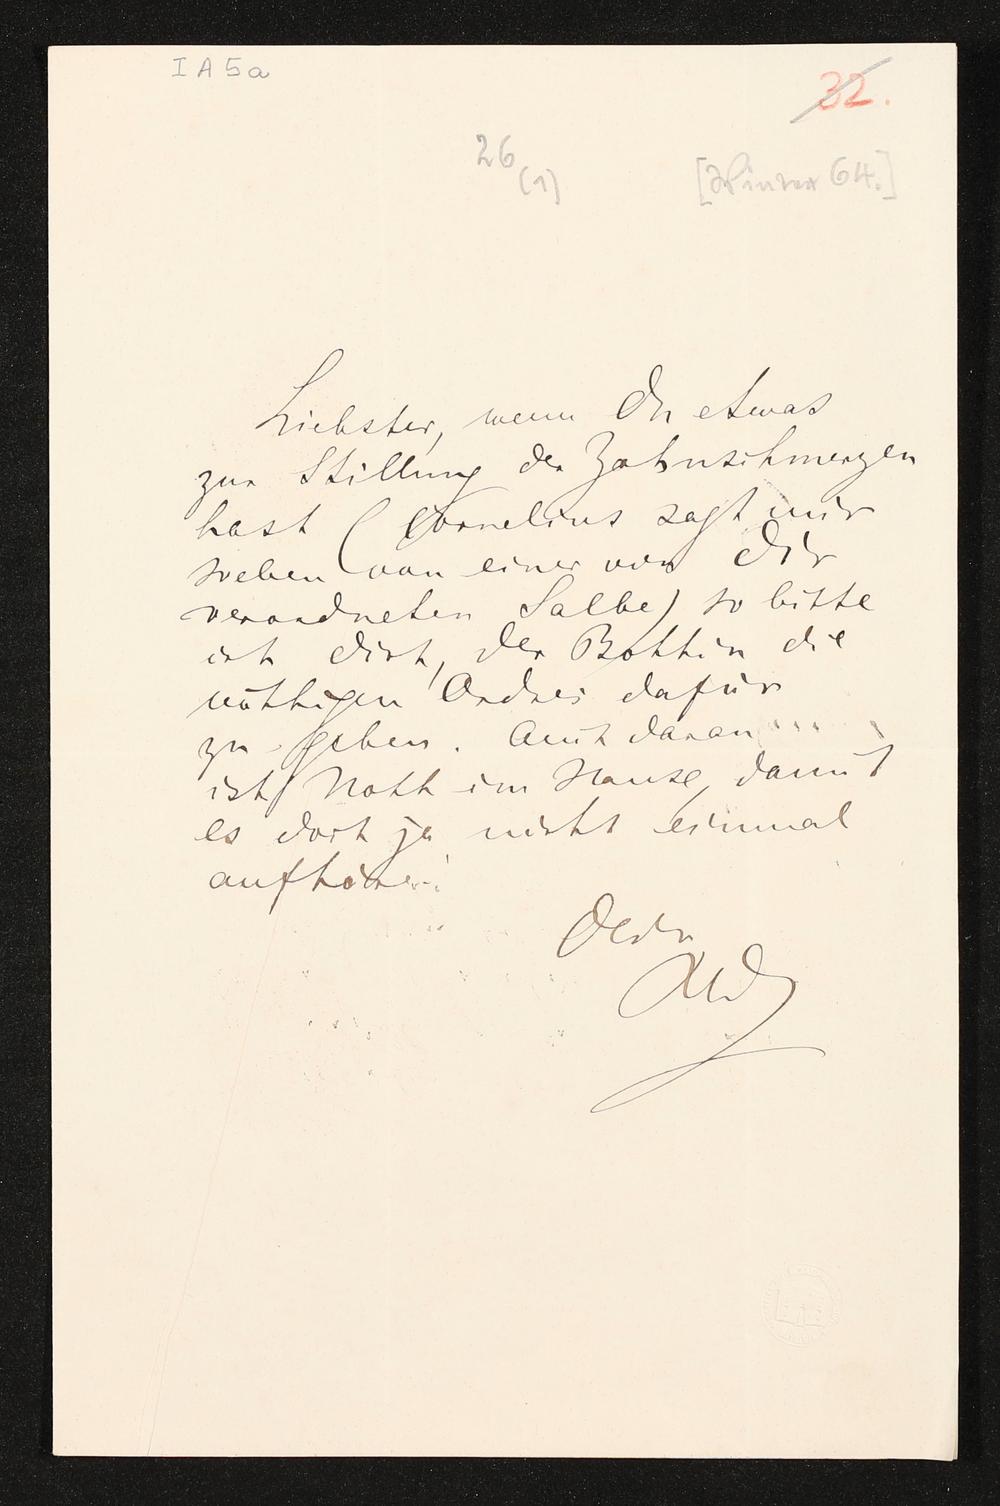 I A 5a
32.
26
(1)
[Winter 64.]
Liebster, wenn Du etwas
zur Stillung der Zahnschmerzen
hast (Cornelius sagt mir
soeben von einer von Dir
verordneten Salbe) so bitte
ich Dich, der Bottin die
nöthigen Ordres dafür
zu geben. Auch daran
ist Noth im Hause, damit
es doch ja nicht einmal
aufhöre!
Dein